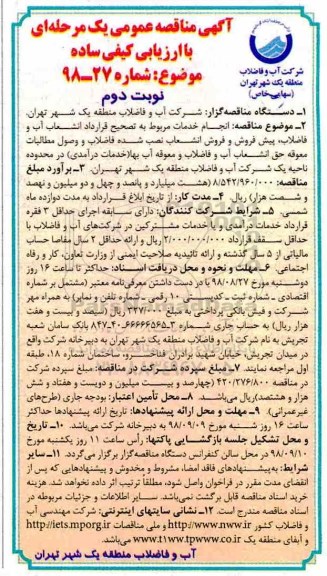 آگهی مناقصه عمومی یک مرحله‌ای
با ارزیابی کیفی ساده
موضوع: شماره ۲۷-۹۸
نوبت دوم
شرکت آب و فاضلاب
منطقه یک شهر تهران
(سهامی خاص)
۱ـ دستگاه مناقصه‌گزار: شرکت آب و فاضلاب منطقه یک شهر تهران.
۲ـ موضوع مناقصه: انجام خدمات مربوط به تصحیح قرارداد انشعاب آب و
فاضلاب، پیش فروش و فروش انشعاب نصب شده فاضلاب و وصول مطالبات
معوقه حق انشعاب آب و فاضلاب و معوقه آب بها(خدمات درآمدی) در محدوده
ناحیه یک شرکت آب و فاضلاب منطقه یک شهر تهران. ۳ـ برآورد مبلغ
مناقصه: ۸/۵۴۲/۹۶۰/۰۰۰ (هشت میلیارد و پانصد و چهل و دو میلیون و نهصد
و شصت هزار) ریال. ۴ـ مدت کار: از تاریخ ابلاغ قرارداد به مدت دوازده ماه
شمسی. ۵ـ شرایط شرکت کنندگان: دارای سابقه اجرای حداقل ۳ فقره
قرارداد خدمات درآمدی یا خدمات مشترکین در شرکت‌های آب و فاضلاب با
حداقل سقف قرارداد ۲/۰۰۰/۰۰۰/۰۰۰ ریال و ارائه حداقل ۲ سال مفاصا حساب
مالیاتی از ۵ سال گذشته و ارائه تائیدیه صلاحیت ایمنی از وزارت تعاون، کار و رفاه
اجتماعی. ۶ـ مهلت و نحوه و محل دریافت اسناد: حداکثر تا ساعت ۱۶ روز
دوشنبه مورخ ۹۸/۰۸/۲۷ با در دست داشتن معرفی‌نامه معتبر (مشتمل بر شماره
اقتصادی ـ شماره ثبت ـ کدپستی ۱۰ رقمی ـ شماره تلفن و نمابر) به همراه مهر
شرکت و فیش بانکی پرداختی به مبلغ ۳۲۷/۰۰۰ ریال (سیصد و بیست و هفت
هزار ریال) به حساب جاری شماره بانک سامان شعبه
تجریش به نام شرکت آب و فاضلاب منطقه یک شهر تهران به دبیرخانه شرکت واقع
در میدان تجریش، خیابان شهید برادران فناخسرو، ساختمان شماره ۱۸، طبقه
اول مراجعه نمایند. ۷ـ مبلغ سپرده شرکت در مناقصه: مبلغ سپرده شرکت
در مناقصه ۴۲۰/۲۷۶/۸۰۰ (چهارصد و بیست میلیون و دویست و هفتاد و شش
هزار و هشتصد)ریال می‌باشد. ۸ـ محل تأمین اعتبار: بودجه جاری (طرح‌های
غیرعمرانی). ۹ـ مهلت و محل ارائه پیشنهادها: تاریخ ارائه پیشنهادها حداکثر
ساعت ۱۶ روز شنبه مورخ ۹۸/۰۹/۰۹ به دبیرخانه شرکت می‌باشد. ۱۰ـ تاریخ
و محل تشکیل جلسه بازگشایی پاکتها: رأس ساعت ۱۱ روز یکشنبه مورخ
۹۸/۰۹/۱۰ در محل سالن کنفرانس دستگاه مناقصه‌گزار برگزار می‌گردد. ۱۱ـ سایر
شرایط: به‌پیشنهادهای فاقد امضا، مشروط و مخدوش و پیشنهادهایی که پس از
انقضای مدت مقرر در فراخوان واصل شود، مطلقا ترتیب اثر داده نخواهد شد. هزینه
خرید اسناد مناقصه قابل برگشت نمی‌باشد. سایر اطلاعات و جزئیات مربوطه در
اسناد مناقصه مندرج است. ۱۲ـ نشانی سایتهای اینترنتی: شرکت مهندسی آب
و فاضلاب کشور http://www.nww.ir و ملی مناقصات http://iets.mporg.ir
و آبفای منطقه یک www.t1ww.tpww.co.ir می‌باشد.
آب و فاضلاب منطقه یک شهر تهران